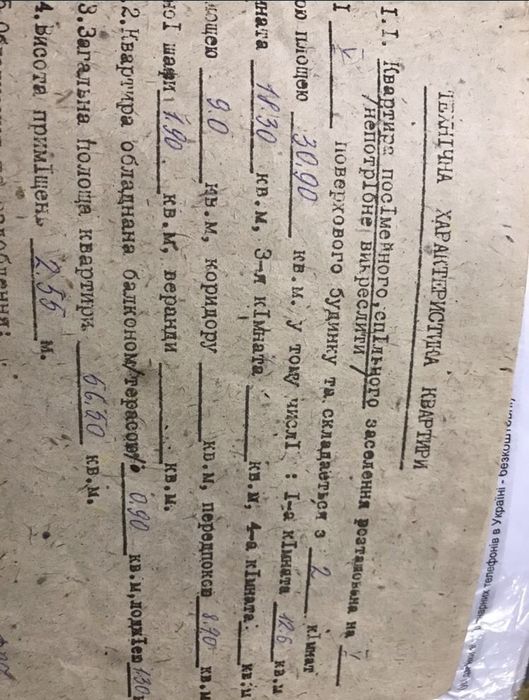 ТЕХНІЧНА ХАРАКТЕРИСТИКА КВАРТИРИ
І.І. Квартира посімейного, спільного заселення розташована на V
/непотрібне викреслити/
І V поверхового будинку та складається з 2 кімнат
ою площею 30.90 кв.м. у тому числі : І-а кімната 12.6 кв.м
мната 18.30 кв.м, 3-я кімната кв.м, 4-а кімната кв.м
лощею 9.0 кв.м, коридору кв.м, передпокою 8.70 кв.м
ної шафи 1.90 кв.м, веранди кв.м.
2. Квартира обладнана балконом/терасою/ 0.90 кв.м, лоджією 1.30
3. Загальна площа квартири 56.50 кв.м.
4. Висота приміщень 2.55 м.
арних телефонів в Україні - безкоштовні)